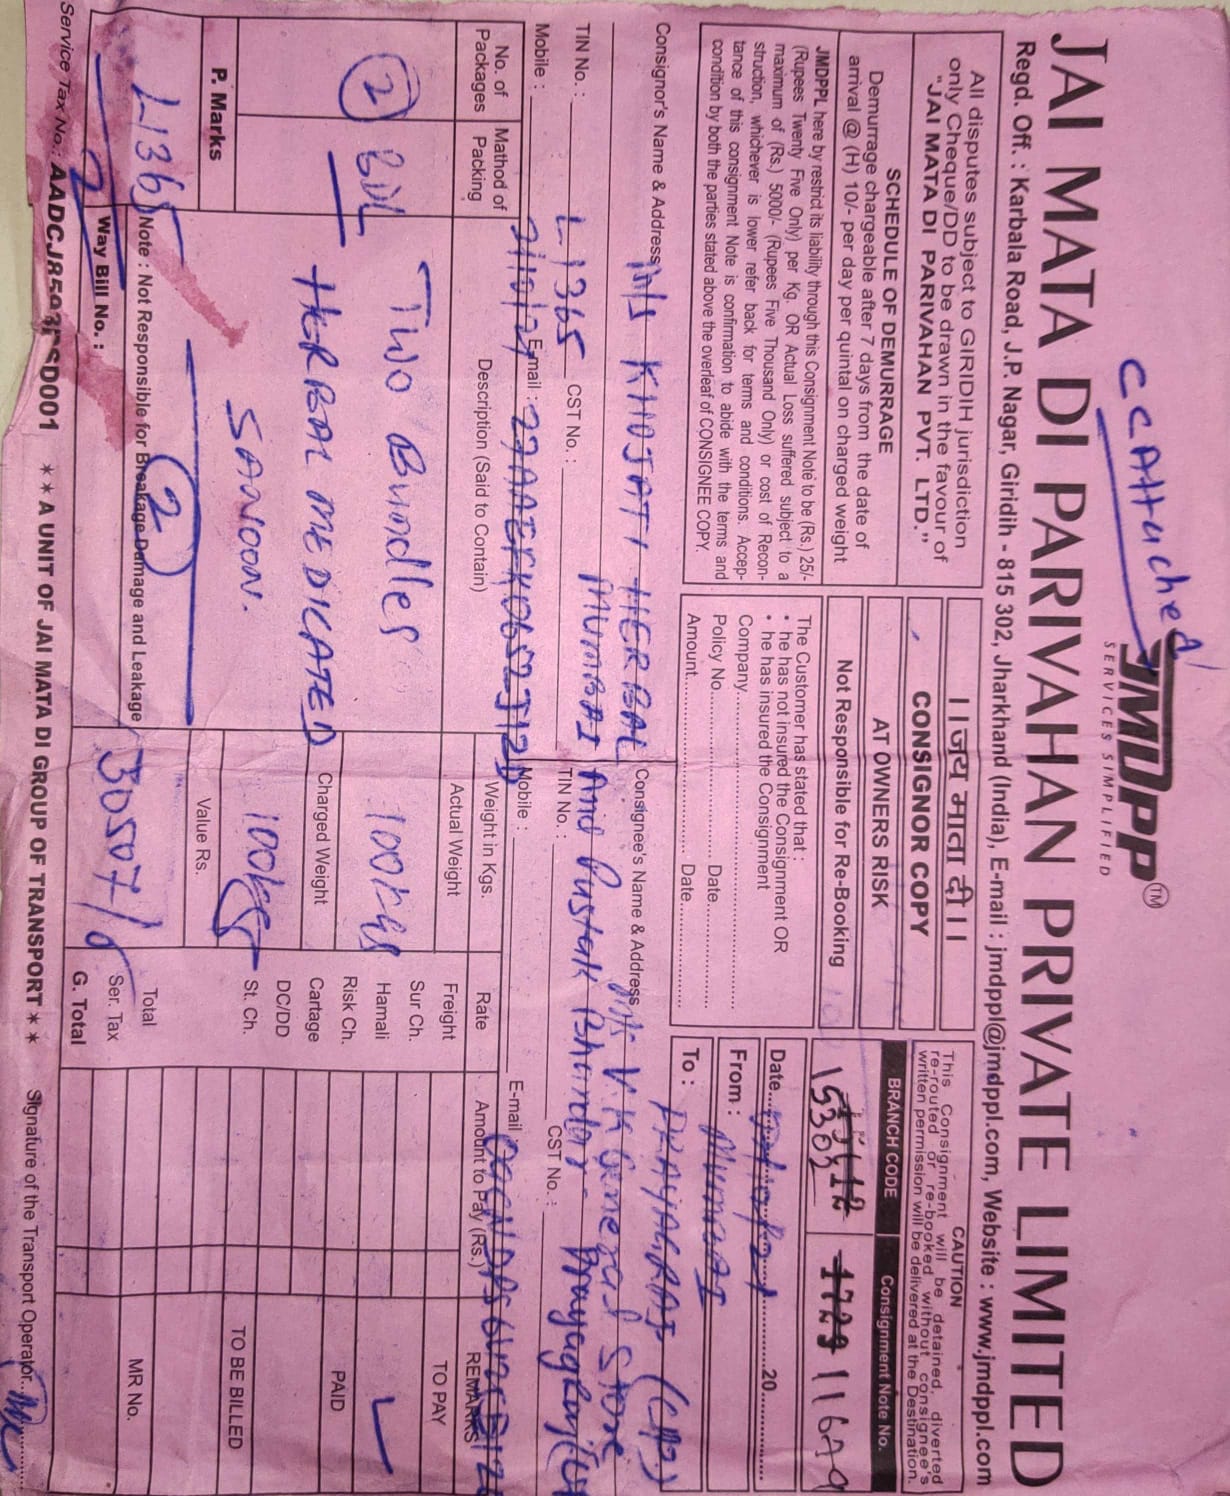 CC Attached
JMDPP™
SERVICES SIMPLIFIED
JAI MATA DI PARIVAHAN PRIVATE LIMITED
Regd. Off. : Karbala Road, J.P. Nagar, Giridih - 815 302, Jharkhand (India), E-mail : jmdppl@jmdppl.com, Website : www.jmdppl.com
All disputes subject to GIRIDIH jurisdiction
only Cheque/DD to be drawn in the favour of
"JAI MATA DI PARIVAHAN PVT. LTD."
SCHEDULE OF DEMURRAGE
Demurrage chargeable after 7 days from the date of
arrival @ (H) 10/- per day per quintal on charged weight
JMDPPL here by restrict its liability through this Consignment Note to be (Rs.) 25/-
(Rupees Twenty Five Only) per Kg. OR Actual Loss suffered subject to a
maximum of (Rs.) 5000/- (Rupees Five Thousand Only) or cost of Recon-
struction, whichever is lower refer back for terms and conditions. Accep-
tance of this consignment Note is confirmation to abide with the terms and
condition by both the parties stated above the overleaf of CONSIGNEE COPY.
।।जय माता दी।।
CONSIGNOR COPY
AT OWNERS RISK
Not Responsible for Re-Booking
The Customer has stated that :
• he has not insured the Consignment OR
• he has insured the Consignment
Company
Policy No. Date
Amount Date
CAUTION
This Consignment will be detained, diverted
re-routed or re-booked without consignee's
written permission will be delivered at the Destination.
BRANCH CODE Consignment Note No.
15302 11699
Date 20
From : Mumbai
To : PRAYAGRAJ (UP)
Consignor's Name & Address M/s KHOJATI HERBAL
MUMBAI
TIN No. : L1365 CST No. :
Mobile : E-mail : 27AAEFK0652J1ZD
Consignee's Name & Address M/s V.K General Store
And Pustak Bhandar - Prayagraj
TIN No. : CST No. :
Mobile : E-mail
No. of Packages
Mathod of Packing
Description (Said to Contain)
Weight in Kgs.
Actual Weight
Rate
Amount to Pay (Rs.)
REMARKS
2 BDL
Two Bundles
HERBAL MEDICATED
SANOON.
2
100kgs
Charged Weight
100kgs
Value Rs.
30507/
Freight
Sur Ch.
Hamali
Risk Ch.
Cartage
DC/DD
St. Ch.
Total
Ser. Tax
G. Total
TO PAY
PAID
TO BE BILLED
MR No.
P. Marks
L1365
2
Note : Not Responsible for Breakage Damage and Leakage
Way Bill No. :
Service Tax No.: AADCJR593PSD001 ** A UNIT OF JAI MATA DI GROUP OF TRANSPORT ** Signature of the Transport Operator